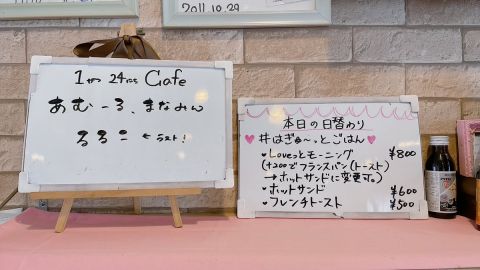 2011.10.29
1月 24日 Cafe
あむーる、まなみん
るるこ ←ラスト!
本日の日替わり
#はぎゅ〜っとごはん
・Loveっとモーニング ¥800
(+200でフランスパン(トースト)
→ホットサンドに変更可。)
・ホットサンド ¥600
・フレンチトースト ¥500